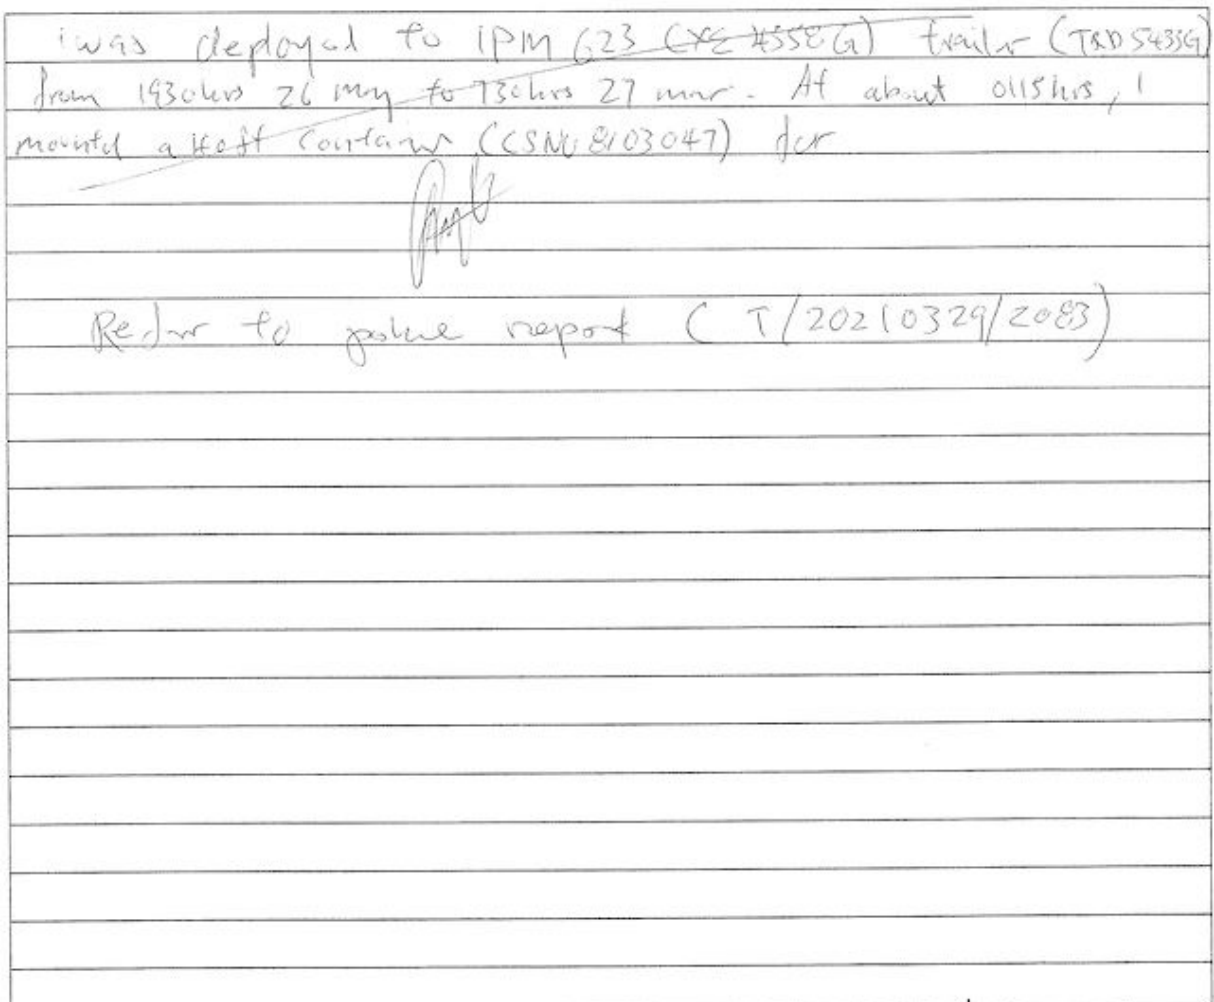 i was deployed to IPM 623 (XE 4558G) trailer (TRD 5433G)
from 1930hrs 26 mar to 730hrs 27 mar. At about 0115hrs, I
mounted a 40ft container (CSNU 8103047) for
Refer to police report (T/20210329/2083)